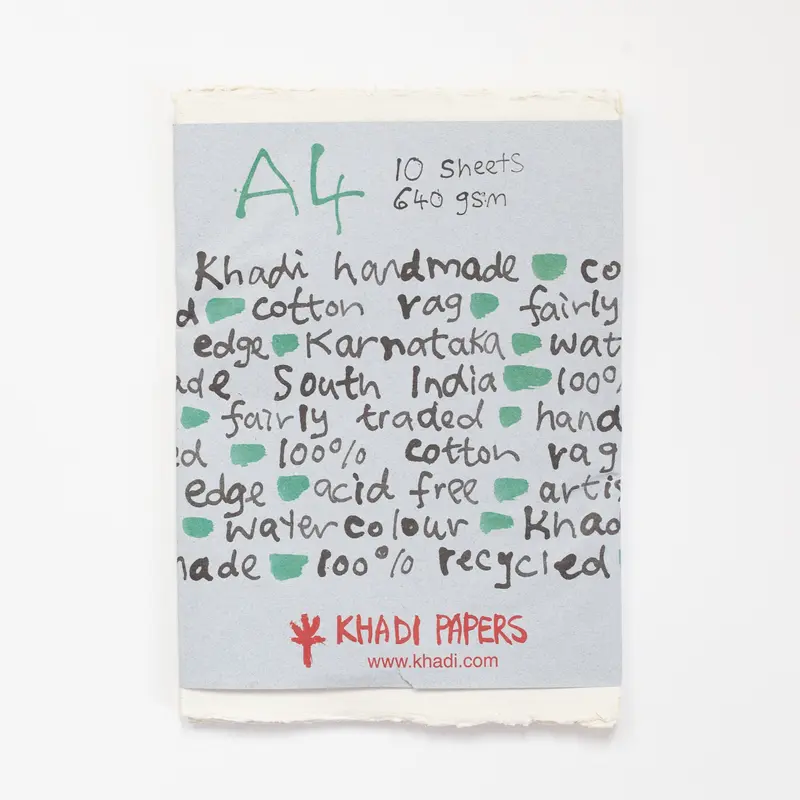 A4
10 sheets
640 gsm
Khadi handmade co
d cotton rag fairly
edge Karnataka wat
ade South India 100%
fairly traded hand
ed 100% cotton rag
edge acid free artis
watercolour Khad
made 100% recycled
KHADI PAPERS
www.khadi.com